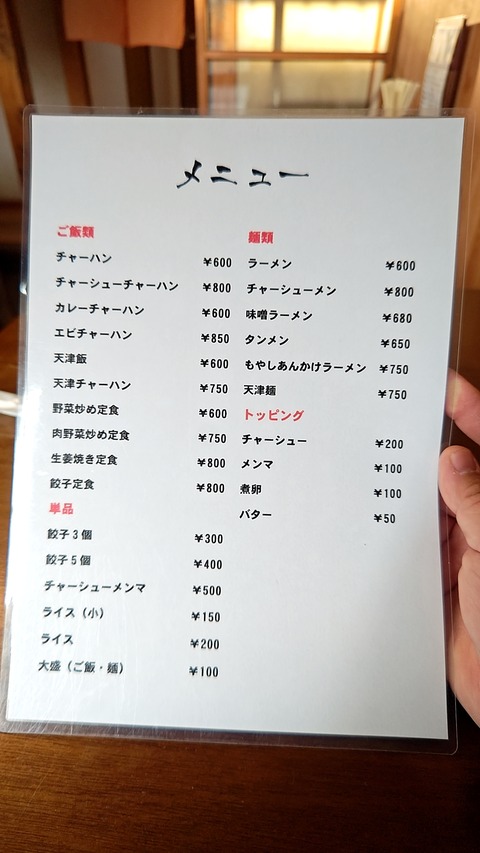 メニュー
ご飯類
チャーハン ¥600
チャーシューチャーハン ¥800
カレーチャーハン ¥600
エビチャーハン ¥850
天津飯 ¥600
天津チャーハン ¥750
野菜炒め定食 ¥600
肉野菜炒め定食 ¥750
生姜焼き定食 ¥800
餃子定食 ¥800
単品
餃子3個 ¥300
餃子5個 ¥400
チャーシューメンマ ¥500
ライス（小） ¥150
ライス ¥200
大盛（ご飯・麺） ¥100
麺類
ラーメン ¥600
チャーシューメン ¥800
味噌ラーメン ¥680
タンメン ¥650
もやしあんかけラーメン ¥750
天津麺 ¥750
トッピング
チャーシュー ¥200
メンマ ¥100
煮卵 ¥100
バター ¥50